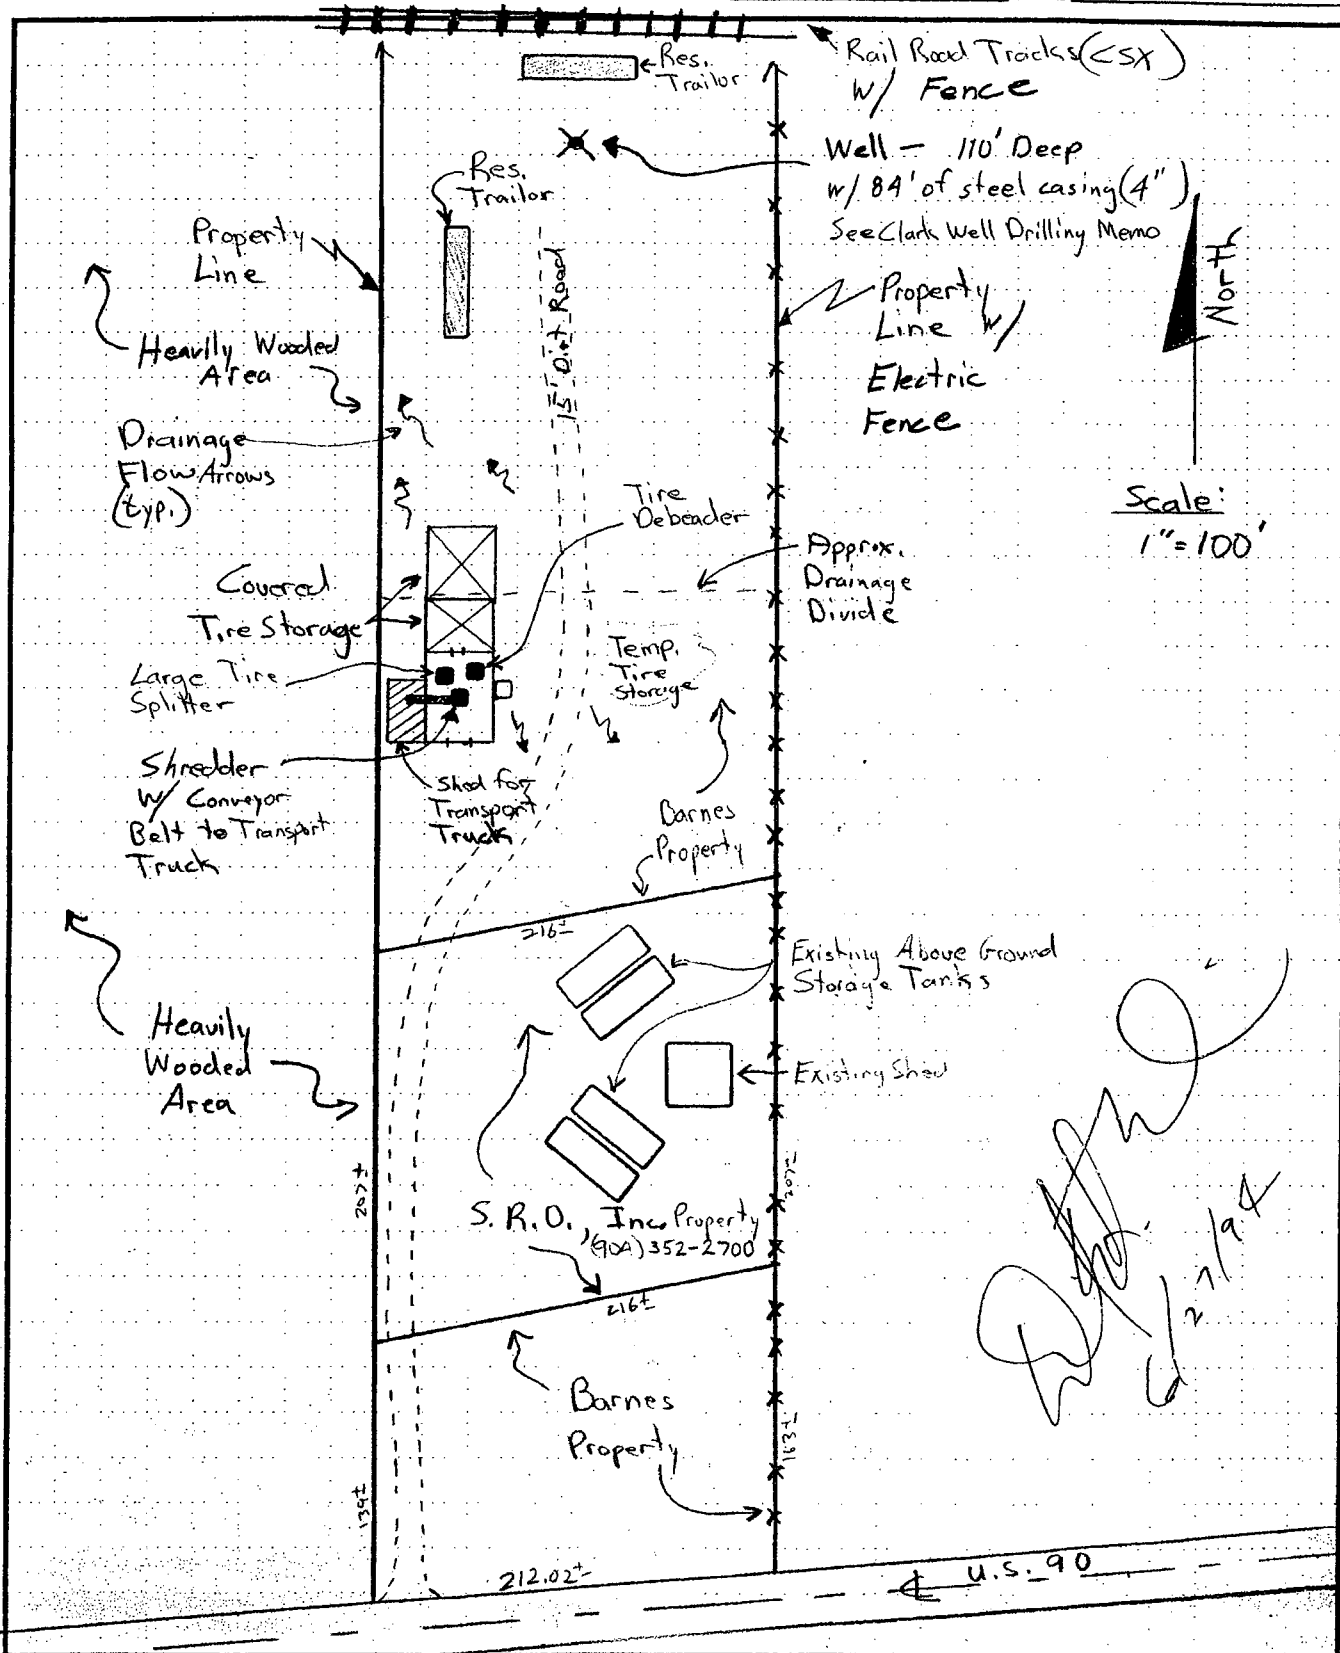 Res.
Trailor
Rail Road Tracks (CSX)
w/ Fence
Well - 110' Deep
w/ 84' of steel casing (4")
See Clark Well Drilling Memo
Res.
Trailor
Property
Line
15' Dirt Road
Property
Line w/
Electric
Fence
North
Heavily Wooded
Area
Drainage
Flow Arrows
(typ.)
Scale:
1" = 100'
Tire
Debeader
Approx.
Drainage
Divide
Covered
Tire Storage
Temp.
Tire
Storage
Large Tire
Splitter
Shredder
w/ Conveyor
Belt to Transport
Truck
Shed for
Transport
Truck
Barnes
Property
216±
Existing Above Ground
Storage Tanks
Heavily
Wooded
Area
Existing Shed
207±
207±
S. R. O., Inc. Property
(904) 352-2700
216±
6/27/94
Barnes
Property
163±
139±
212.02±
U.S. 90